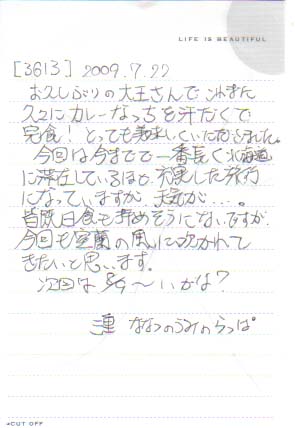 LIFE IS BEAUTIFUL
[3613] 2009.7.22
お久しぶりの大王さんで これまた
久々に カレーなっちを 汗だくで
完食! とっても美味しくいただきました。
今回は今までで一番長く北海道
に滞在しているほど 充実した旅行
になっていますが、天気が…。
皆既日食も拝めそうにないですが
今回も室蘭の風に吹かれて
きたいと思います。
次回は 〜いかな?
ななつのうみのらっぱ
CUT OFF